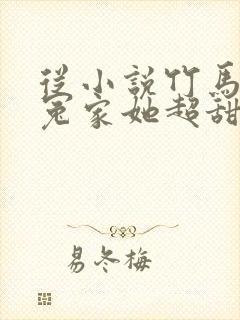 從小說竹馬
冤家她超甜
易冬梅